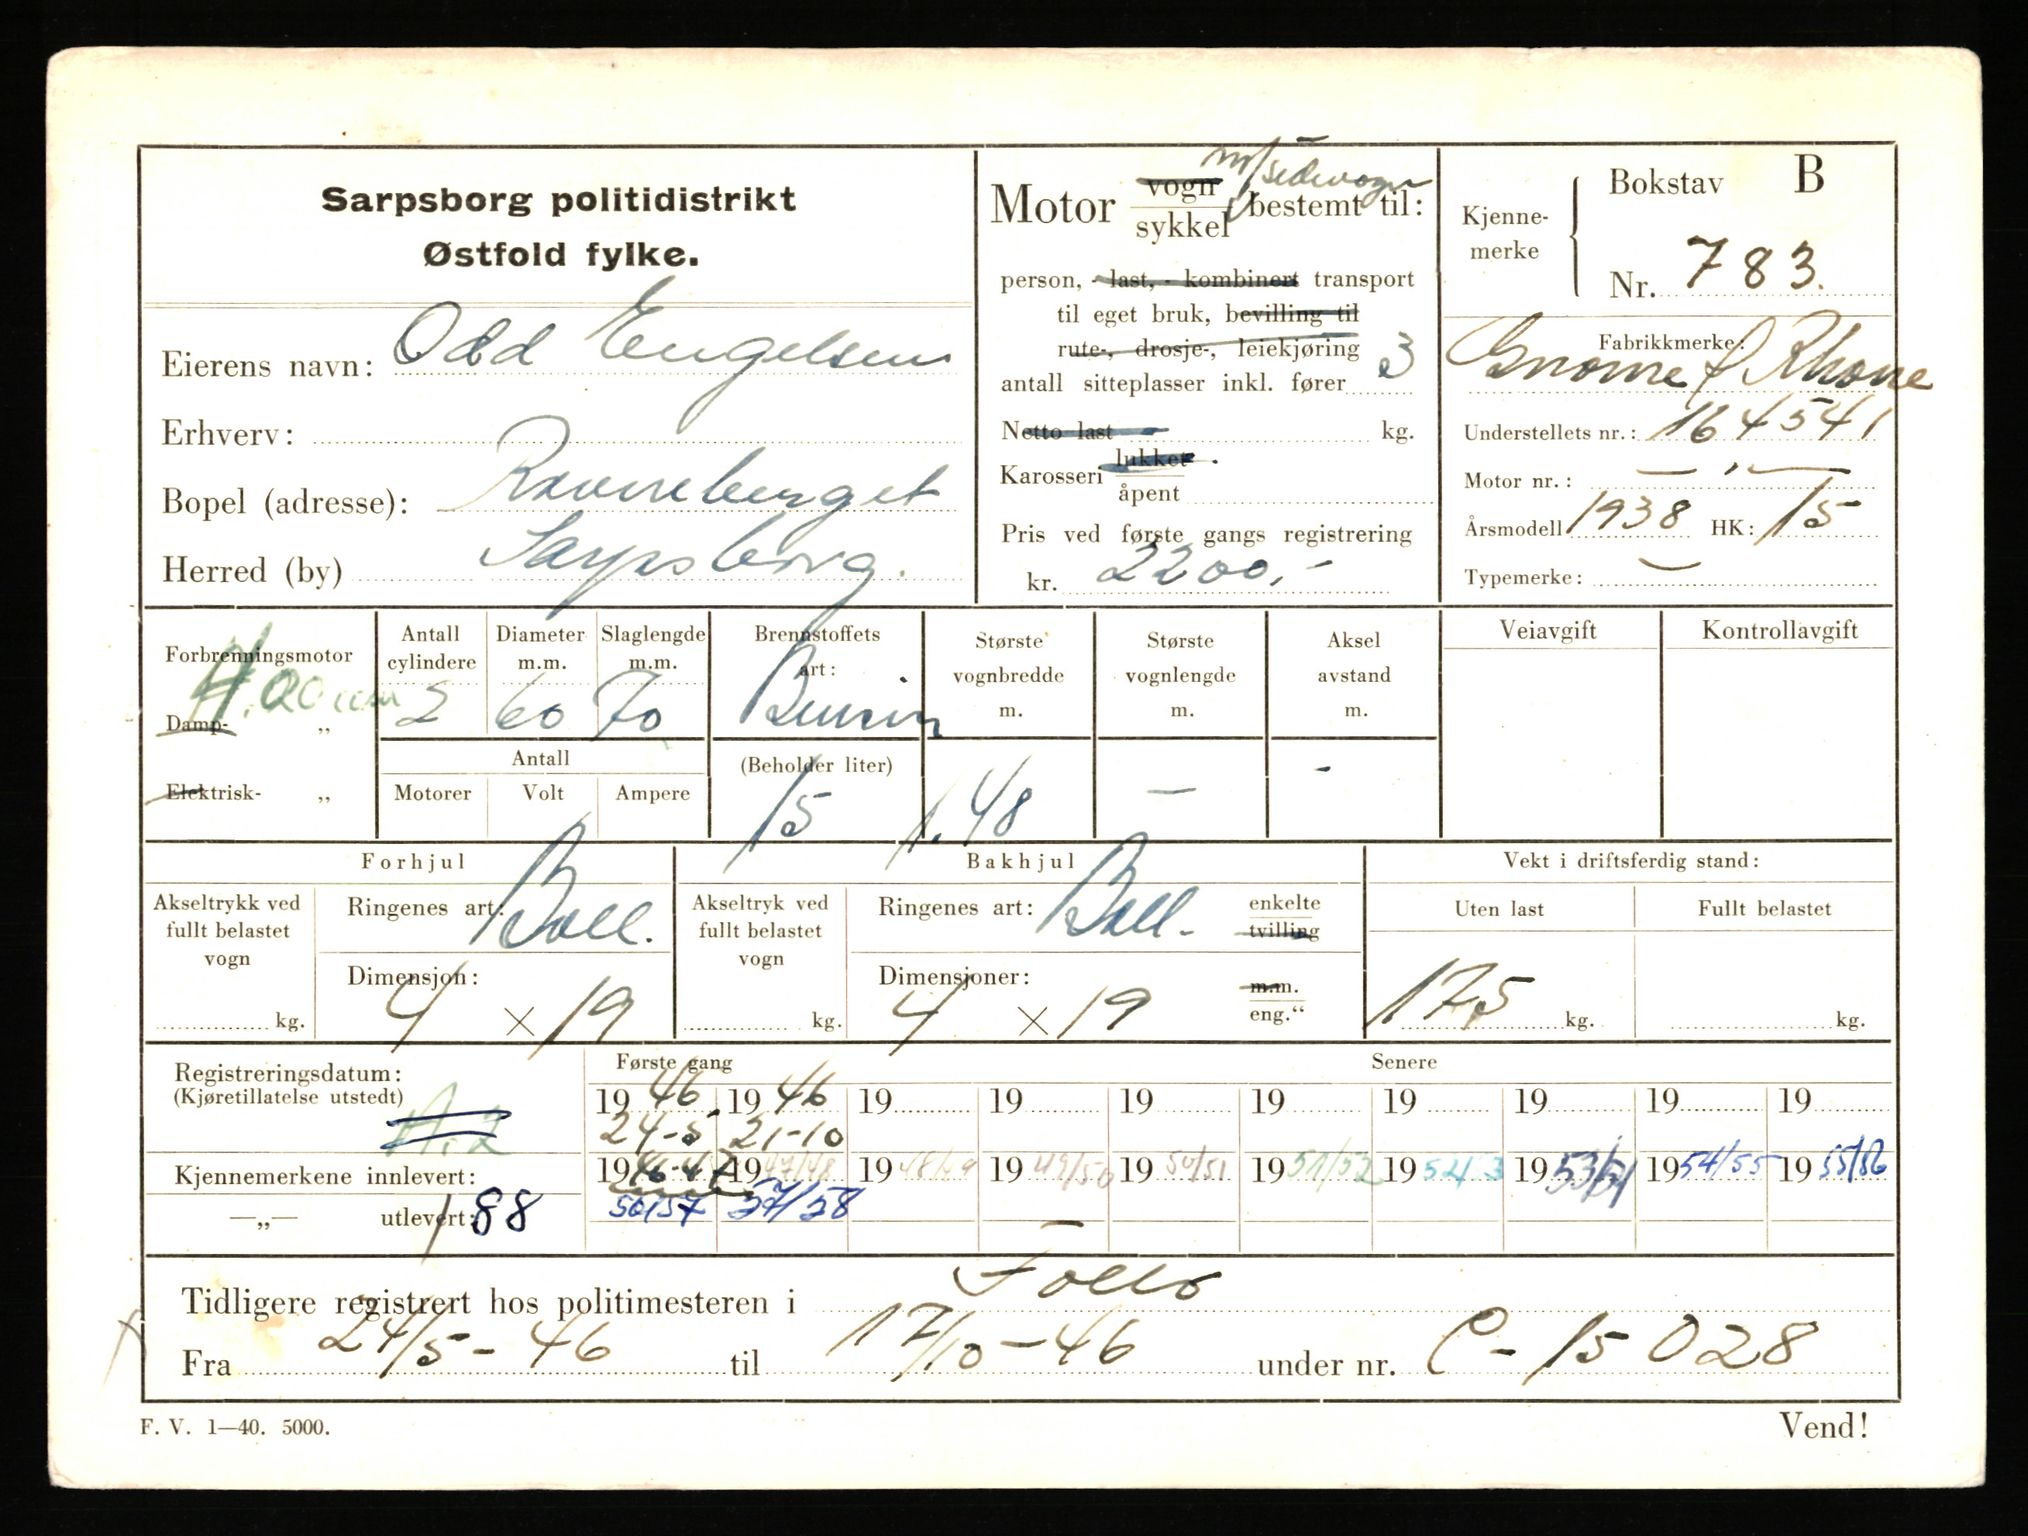 Sarpsborg politidistrikt
Østfold fylke.
Eierens navn: Odd Engelsen
Erhverv:
Bopel (adresse): Ravneberget
Herred (by) Sarpsborg.
m/sidevogn
Motor vogn sykkel bestemt til:
person, - last, - kombinert transport
til eget bruk, bevilling til
rute-, drosje-, leiekjøring
antall sitteplasser inkl. fører 3
Netto last kg.
Karosseri lukket åpent
Pris ved første gangs registrering
kr. 2200,-
Kjenne-merke
Bokstav B
Nr. 783.
Fabrikkmerke:
Gnome & Rhone
Understellets nr.: 164541
Motor nr.: — " —
Årsmodell 1938 HK: 15
Typemerke: —
Forbrenningsmotor
Damp- „
Elektrisk- „
Antall cylindere 2
Diameter m.m. 60
Slaglengde m.m. 70
Antall
Motorer Volt Ampere
Brennstoffets art: Bensin
(Beholder liter) 15
Største vognbredde m. 1.48
Største vognlengde m. —
Aksel avstand m. -
Veiavgift
Kontrollavgift
Forhjul
Akseltrykk ved fullt belastet vogn
kg.
Ringenes art: Ball.
Dimensjon: 4 × 19
Bakhjul
Akseltryk ved fullt belastet vogn
kg.
Ringenes art: Ball.
enkelte
tvilling
Dimensjoner: 4 × 19
m.m.
eng.“
Vekt i driftsferdig stand:
Uten last 175 kg.
Fullt belastet kg.
Registreringsdatum:
(Kjøretillatelse utstedt)
Første gang Senere
1946 1946 19 19 19 19 19 19 19 19
24-5 21-10
Kjennemerkene innlevert: 1946-47 19 47/48 19 48/49 19 49/50 19 50/51 19 51/52 19 52/53 19 53/54 19 54/55 19 55/56
—„— utlevert: 188 56/57 57/58
Tidligere registrert hos politimesteren i Follo
Fra 24/5-46 til 17/10-46 under nr. C-15028
F. V. 1—40. 5000.
Vend!